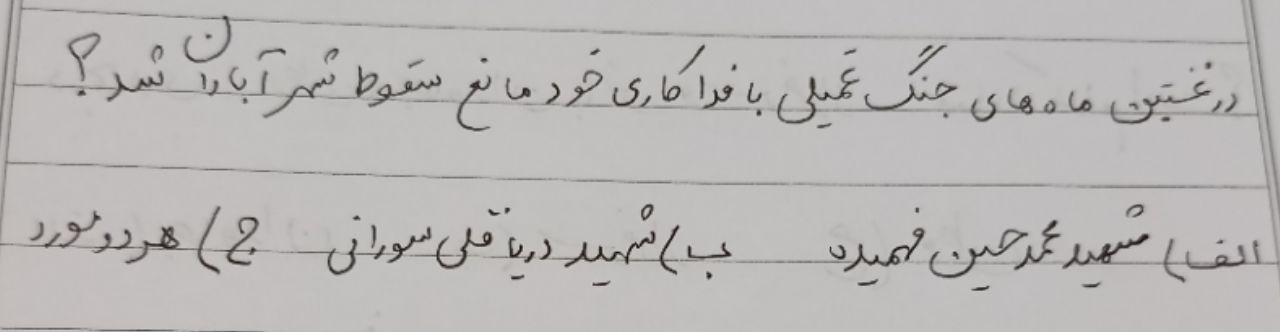 در نخستین ماه های جنگ تحمیلی با فداکاری خود مانع سقوط شهر آبادان شد؟
الف) شهید محمد حسین فهمیده ب) شهید دریا قلی سورانی ج) هر دو مورد